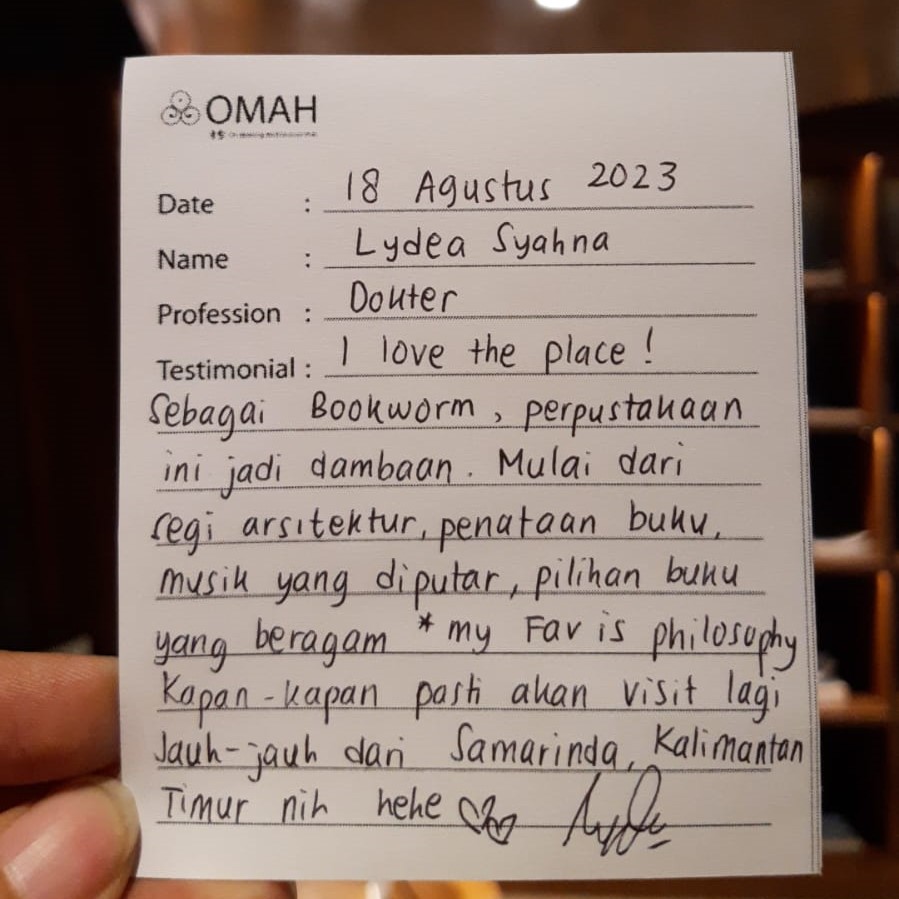 OMAH
Date : 18 Agustus 2023
Name : Lydea Syahna
Profession : Dokter
Testimonial : I love the place !
Sebagai Bookworm , perpustakaan
ini jadi dambaan . Mulai dari
segi arsitektur, penataan buku,
musik yang diputar, pilihan buku
yang beragam * my Fav is philosophy
Kapan-kapan pasti akan visit lagi
Jauh-jauh dari Samarinda, Kalimantan
Timur nih hehe